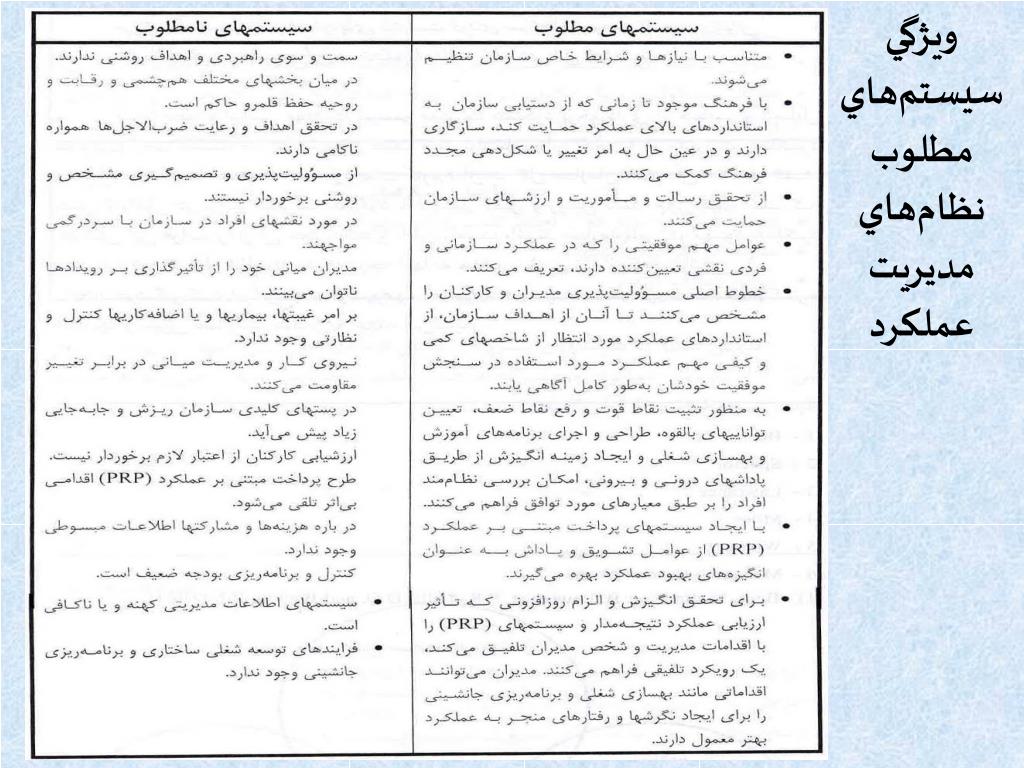 ويژگي
سيستم‌هاي
مطلوب
نظام‌هاي
مديريت
عملكرد
سیستمهای مطلوب
متناسب با نیازها و شرایط خاص سازمان تنظیم
می‌شوند.
با فرهنگ موجود تا زمانی که از دستیابی سازمان به
استانداردهای بالای عملکرد حمایت کند، سازگاری
دارند و در عین حال به امر تغییر یا شکل‌دهی مجدد
فرهنگ کمک می‌کنند.
از تحقق رسالت و مأموریت و ارزشهای سازمان
حمایت می‌کنند.
عوامل مهم موفقیتی را که در عملکرد سازمانی و
فردی نقشی تعیین‌کننده دارند، تعریف می‌کنند.
خطوط اصلی مسؤولیت‌پذیری مدیران و کارکنان را
مشخص می‌کنند تا آنان از اهداف سازمان، از
استانداردهای عملکرد مورد انتظار از شاخصهای کمی
و کیفی مهم عملکرد مورد استفاده در سنجش
موفقیت خودشان به‌طور کامل آگاهی یابند.
به منظور تثبیت نقاط قوت و رفع نقاط ضعف، تعیین
تواناییهای بالقوه، طراحی و اجرای برنامه‌های آموزش
و بهسازی شغلی و ایجاد زمینه انگیزش از طریق
پاداشهای درونی و بیرونی، امکان بررسی نظام‌مند
افراد را بر طبق معیارهای مورد توافق فراهم می‌کنند.
با ایجاد سیستمهای پرداخت مبتنی بر عملکرد
(PRP) از عوامل تشویق و پاداش به عنوان
انگیزه‌های بهبود عملکرد بهره می‌گیرند.
برای تحقق انگیزش و الزام روزافزونی که تأثیر
ارزیابی عملکرد نتیجه‌مدار و سیستمهای (PRP) را
با اقدامات مدیریت و شخص مدیران تلفیق می‌کند،
یک رویکرد تلفیقی فراهم می‌کنند. مدیران می‌توانند
اقداماتی مانند بهسازی شغلی و برنامه‌ریزی جانشینی
را برای ایجاد نگرشها و رفتارهای منجر به عملکرد
بهتر معمول دارند.
سیستمهای نامطلوب
سمت و سوی راهبردی و اهداف روشنی ندارند.
در میان بخشهای مختلف هم‌چشمی و رقابت و
روحیه حفظ قلمرو حاکم است.
در تحقق اهداف و رعایت ضرب‌الاجل‌ها همواره
ناکامی دارند.
از مسؤولیت‌پذیری و تصمیم‌گیری مشخص و
روشنی برخوردار نیستند.
در مورد نقشهای افراد در سازمان با سردرگمی
مواجهند.
مدیران میانی خود را از تأثیرگذاری بر رویدادها
ناتوان می‌بینند.
بر امر غیبتها، بیماریها و یا اضافه‌کاریها کنترل و
نظارتی وجود ندارد.
نیروی کار و مدیریت میانی در برابر تغییر
مقاومت می‌کنند.
در پستهای کلیدی سازمان ریزش و جابه‌جایی
زیاد پیش می‌آید.
ارزشیابی کارکنان از اعتبار لازم برخوردار نیست.
طرح پرداخت مبتنی بر عملکرد (PRP) اقدامی
بی‌اثر تلقی می‌شود.
در باره هزینه‌ها و مشارکتها اطلاعات مبسوطی
وجود ندارد.
کنترل و برنامه‌ریزی بودجه ضعیف است.
سیستمهای اطلاعات مدیریتی کهنه و یا ناکافی
است.
فرایندهای توسعه شغلی ساختاری و برنامه‌ریزی
جانشینی وجود ندارد.